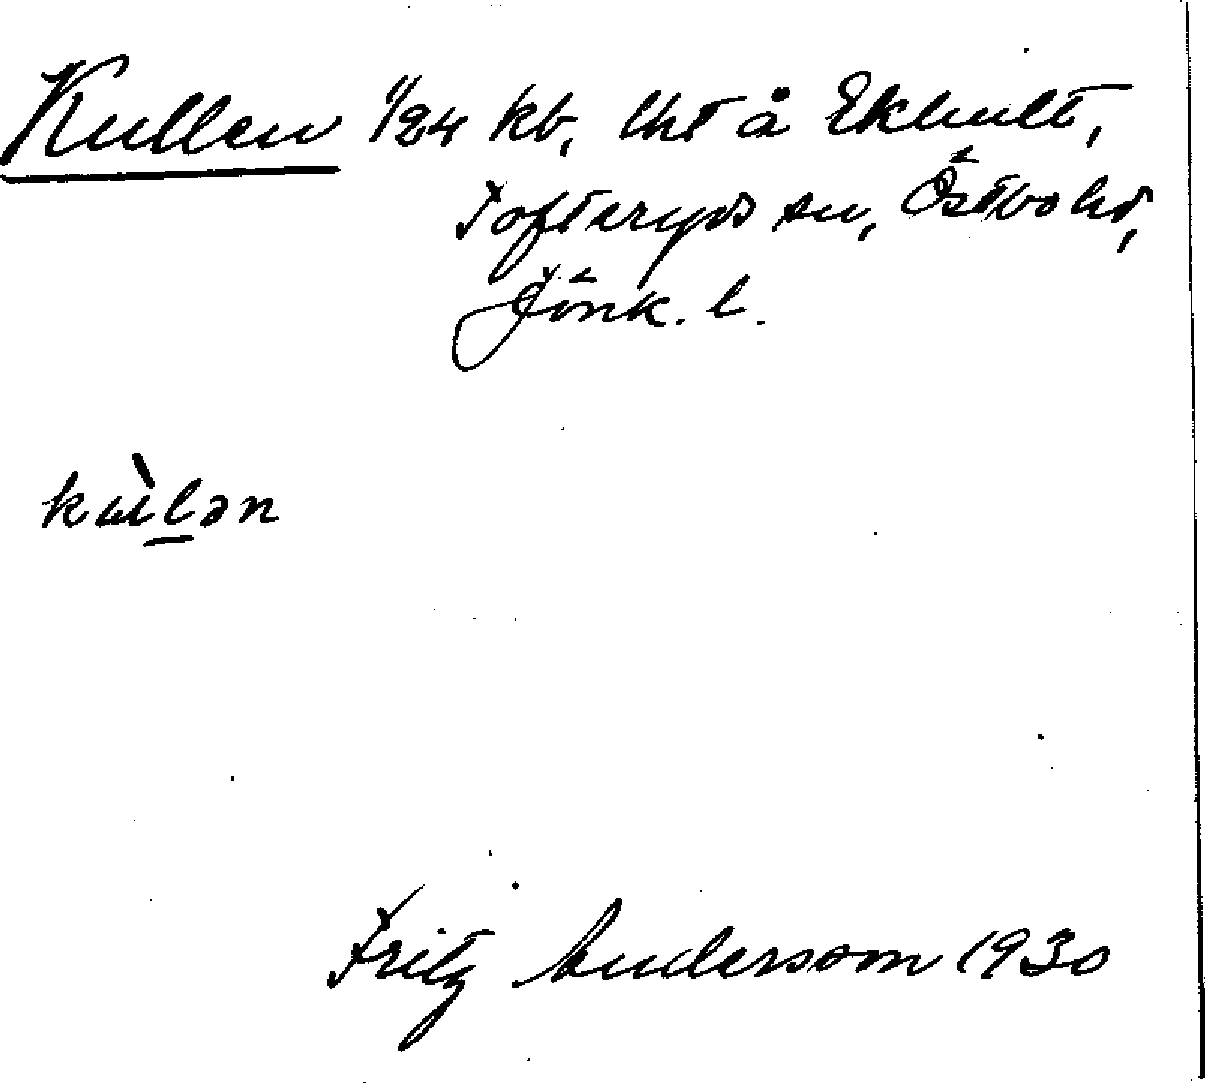 Kullen 1/24 kb, lht å Ekhult,
Tofteryds sn, Östbo hd,
Jönk. l.
Fritz Andersson 1930